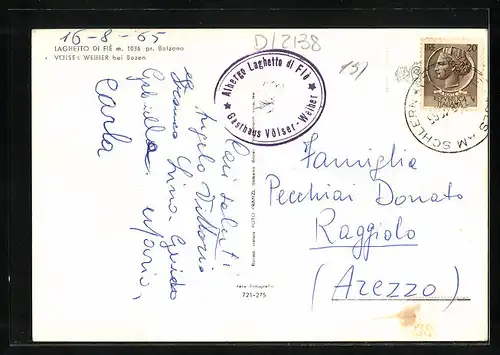 16-8-65
LAGHETTO DI FIÈ m. 1036 pr. Bolzano
VÖLSER WEIHER bei Bozen
D/2138
Albergo Laghetto di Fiè
Gasthaus Völser-Weiher
20
AM SCHLERN
Cari saluti
Angelo Vittorio
Franco Lina Guido
Gabriella Mario,
Carla
Famiglia
Pecchiai Donato
Raggiolo
(Arezzo)
Vera Fotografia
721-275